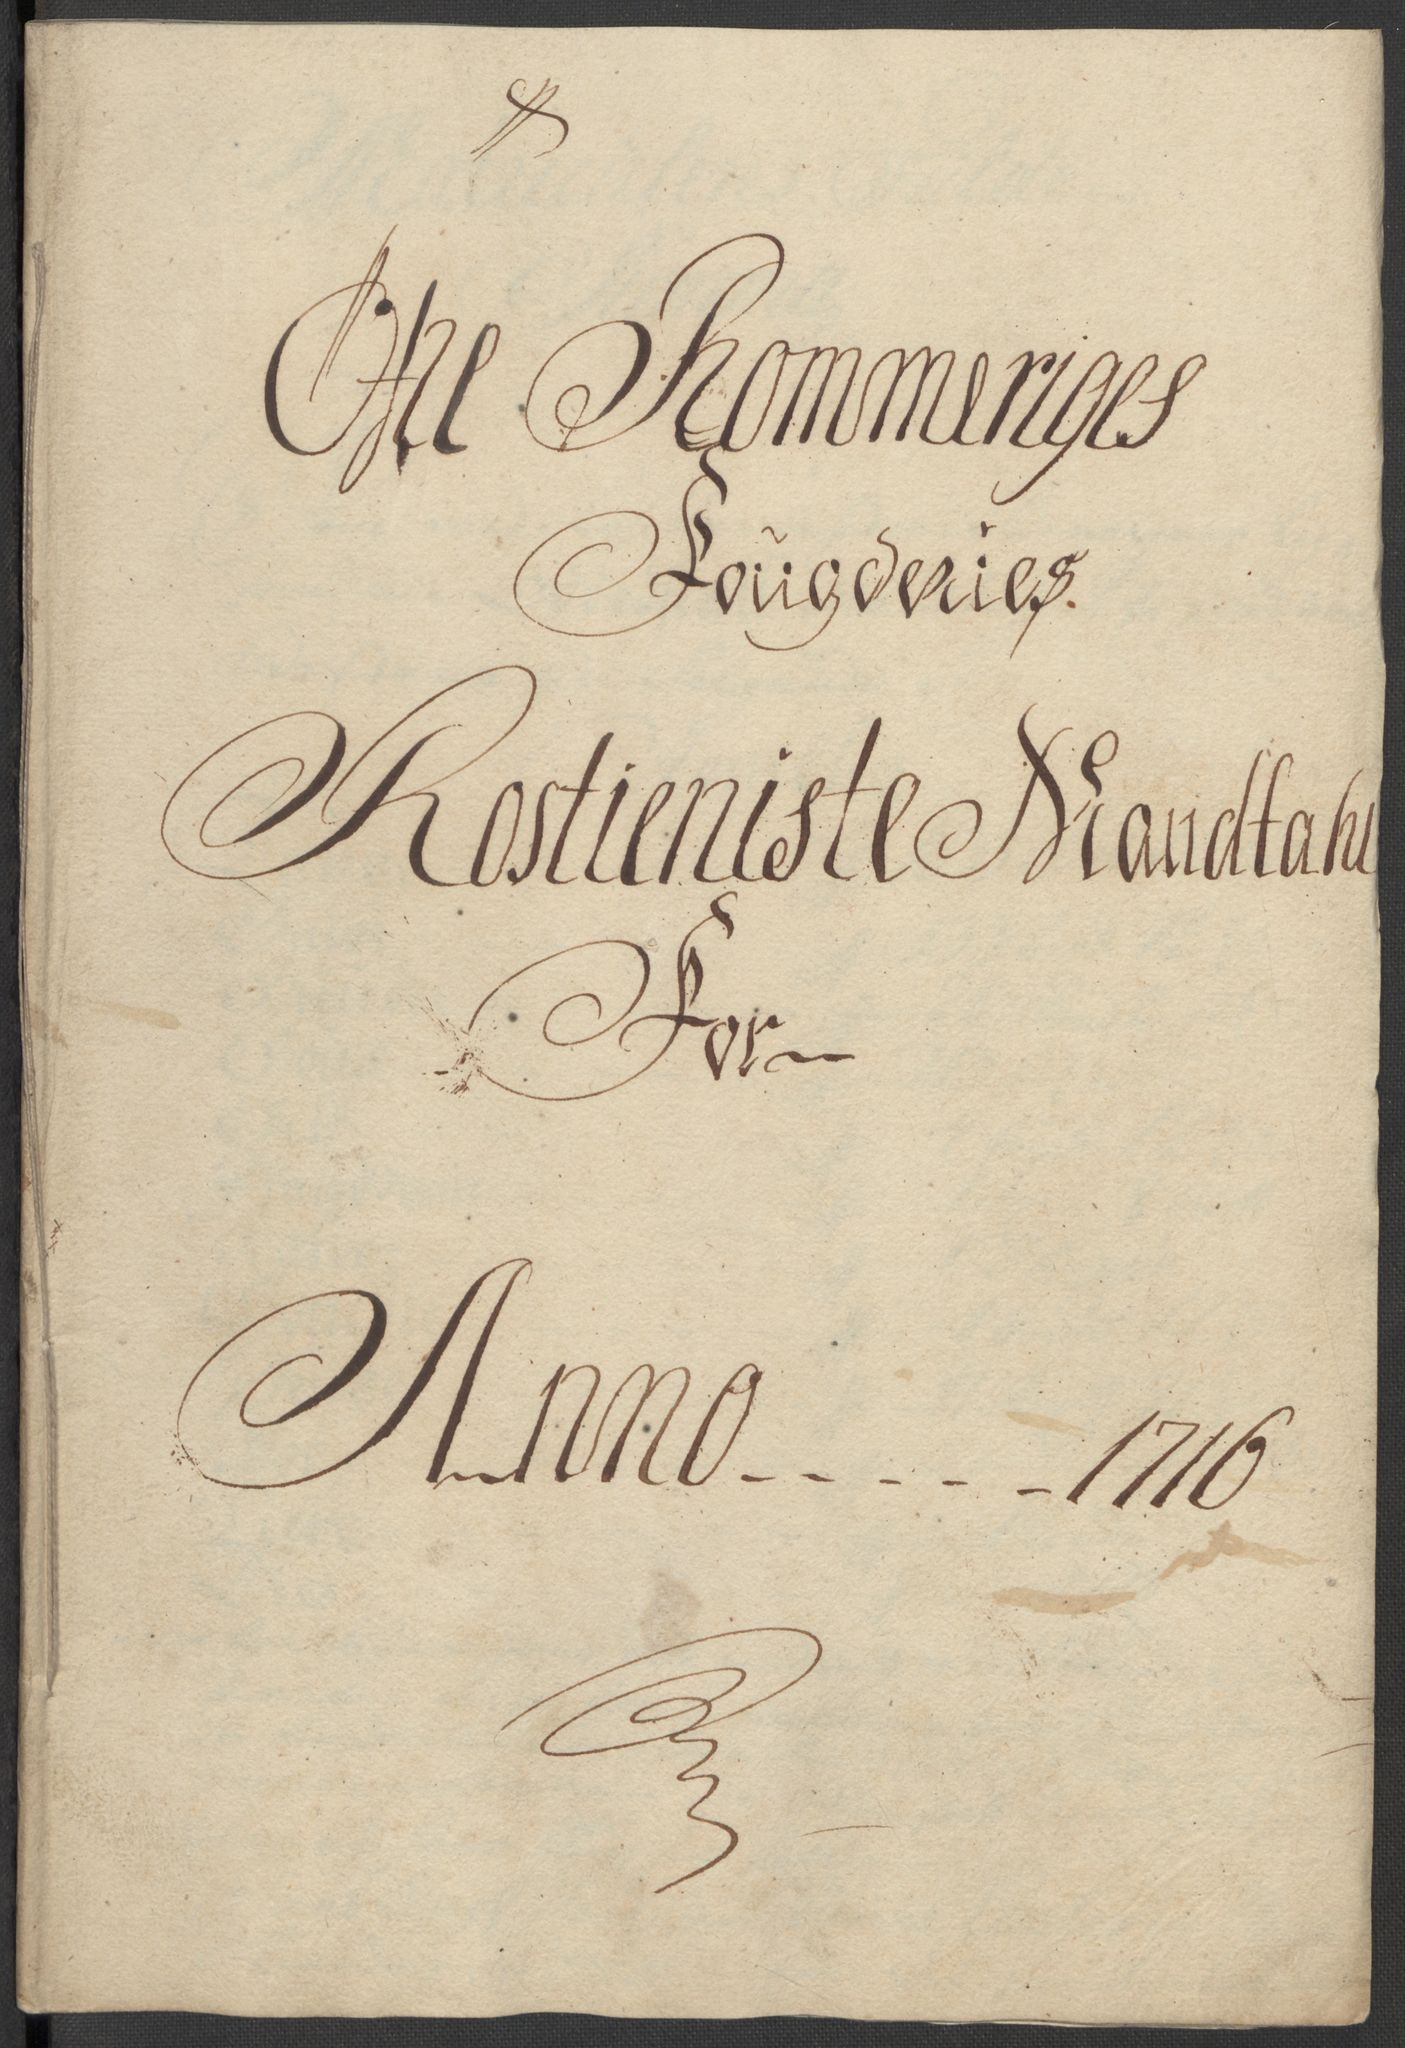 Øfre Rommeriges
Fougderies
Rostieniste Mandtahl
For
Anno - - - - - 1716